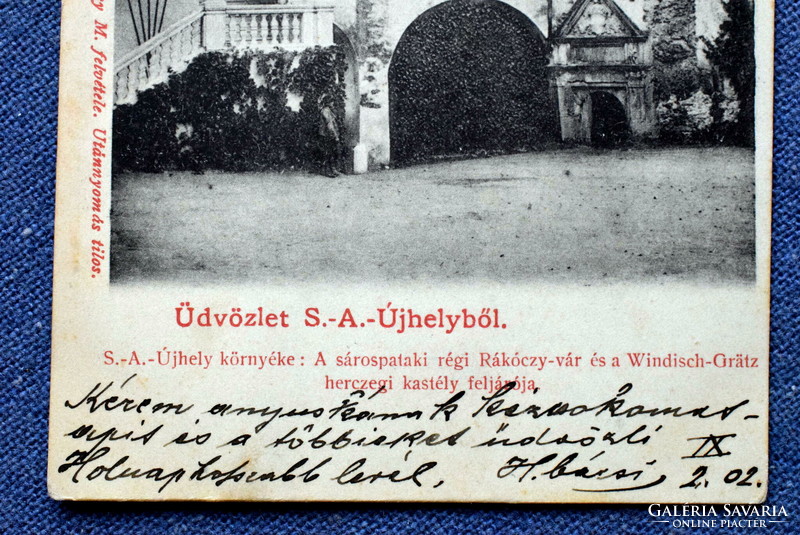 y M. felvétele. Utánnyomás tilos.
Üdvözlet S.-A.-Újhelyből.
S.-A.-Újhely környéke: A sárospataki régi Rákóczy-vár és a Windisch-Grätz
herczegi kastély feljárója.
Kérem anyuskának
és a többieket üdvözli IX
Holnap hosszabb levél. H. bácsi 2. 02.
GALÉRIA SAVARIA
ONLINE PIACTÉR